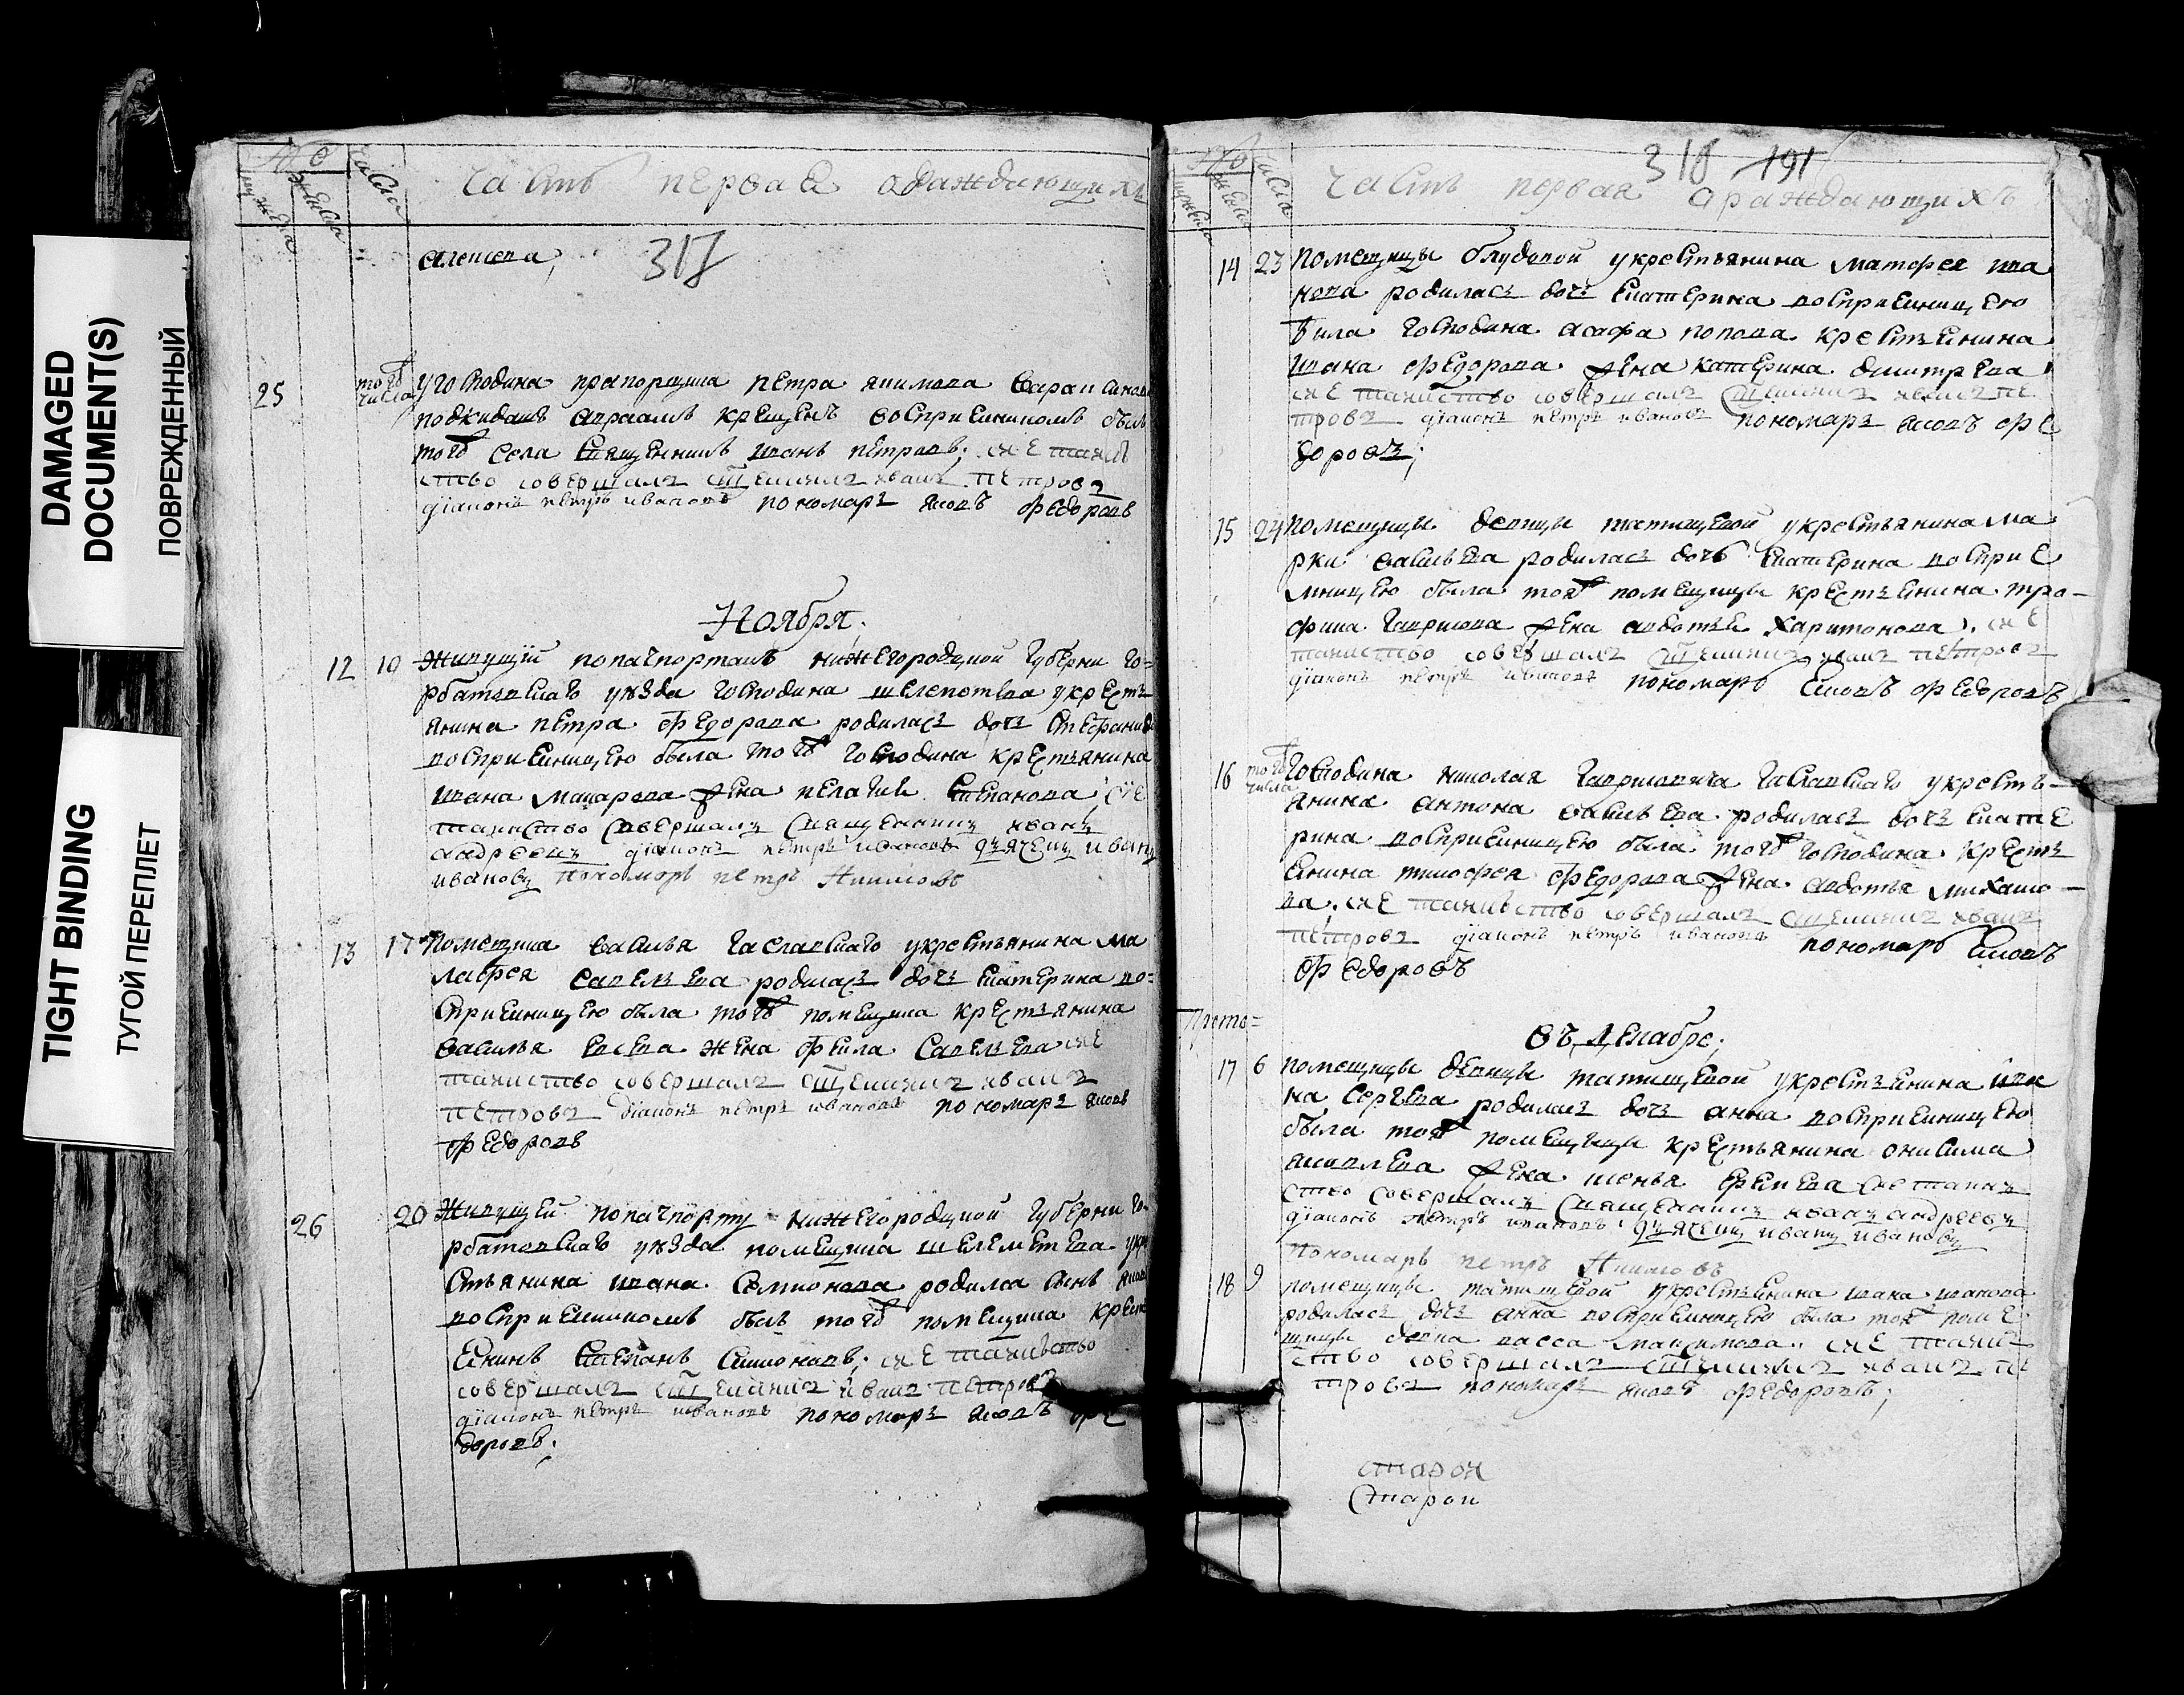 DAMAGED
DOCUMENT(S)
ПОВРЕЖДЕННЫЙ
TIGHT BINDING
ТУГОЙ ПЕРЕПЛЕТ
числа
Часть первая ораждающихъ
317
25 того числа У господина прапорщика петра якимова
подкидашъ авраамъ крещенъ восприемникомъ былъ
того села священникъ иванъ петровъ; сие таин
ство совершалъ священникъ иванъ петровъ
диаконъ петръ ивановъ пономарь яковъ федоровъ
Ноября.
12 10 Живущий попачпортамъ нижегородцкой губерни го=
рбатовскаго уезда господина шелепотева укресть
янина петра федорова родилась дочь стефанида
восприемницею была того господина крестьянина
ивана макарова жена пелагия степанова сие
таинство совершалъ священникъ иванъ
андреевъ диаконъ петръ ивановъ дьячекъ иванъ
ивановъ пономарь петръ Якимовъ
13 17 Помещика василья гаславскаго укрестьянина ма
лафея савельева родилась дочь екатерина во=
сприемницею была того помещика крестьянина
василья евсева жена фекла савельева сие
таинство совершалъ священникъ иванъ
петровъ диаконъ петръ ивановъ пономарь яковъ
федоровъ
26 20 Живущей попачпорту нижегородцкой губерни го-
рбатовскаго уезда помещика шелеметева укре
стьянина ивана семионова родился сынъ яковъ
восприемникомъ былъ того помещика крестъ
янинъ степанъ симионовъ; сие таинство
совершалъ священникъ иванъ петровъ
диаконъ петръ ивановъ пономарь яковъ фе
доровъ;
318 191
числа
Часть первая ораждающихъ
14 23 помещицы блудовой укрестьянина матфея ива
нова родилась дочь екатерина восприемницею
была господина асафа попова крестьянина
ивана федорова жена катерина дмитрева
сие таинство совершалъ священникъ иванъ пе
тровъ диаконъ петръ ивановъ пономарь яковъ фе
доровъ;
15 24 помещицы девицы татищевой укрестьянина ма
рки васильева родилась дочь екатерина восприе
мницею была тояъ помещицы крестьянина тро-
фима гаврилова жена авдотья харитонова. сие
таинство совершалъ священникъ иванъ петровъ
диаконъ петръ ивановъ пономарь яковъ федоровъ
16 того числа Господина николая гавриловича гаславскаго укресть-
янина антона васильева родилась дочь екате
рина восприемницею была того господина кресть
янина тимофея федорова жена авдотья михайло-
ва. сие таинство совершалъ священникъ иванъ
петровъ диаконъ петръ ивановъ пономарь яковъ
федоровъ
въ декабре;
17 6 помещицы девицы татищевой укрестьянина ива
на сергева родилась дочь анна восприемницею
была тояъ помещицы крестьянина онисима
яковлева жена ксенья ерепева сие таин
ство совершалъ священникъ иванъ андреевъ
диаконъ петръ ивановъ дьячекъ иванъ ивановъ
пономарь петръ Якимовъ
18 9 помещицы татищевой укрестьянина ивана иванова
родилась дочь анна восприемницею была тояъ поме
щицы девка васса максимова. сие таин
ство совершалъ священникъ иванъ пе
тровъ пономарь яковъ федоровъ;